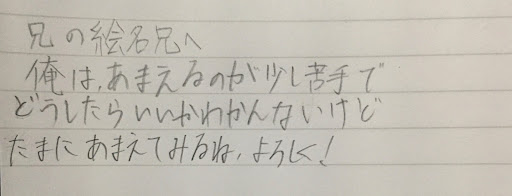 兄の絵名兄へ
俺は、あまえるのが少し苦手で
どうしたらいいかわかんないけど
たまにあまえてみるね、よろしく!